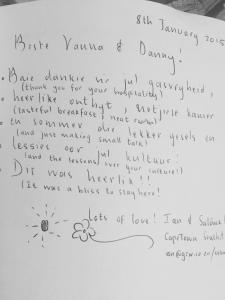 8th January 2015
Beste Vanna & Danny!
Baie dankie vir jul gasvryheid,
(thank you for your hospitality)
heerlike ontbyt, netjiese kamer
(tasteful breakfast, neat room)
en sommer die lekker gesels en
(and just making small talk)
lessies oor jul kultuur!
(and the lessons over your culture!)
Dit was heerlik!!
(It was a bliss to stay here!)
Lots of love! Ian &
CapeTown